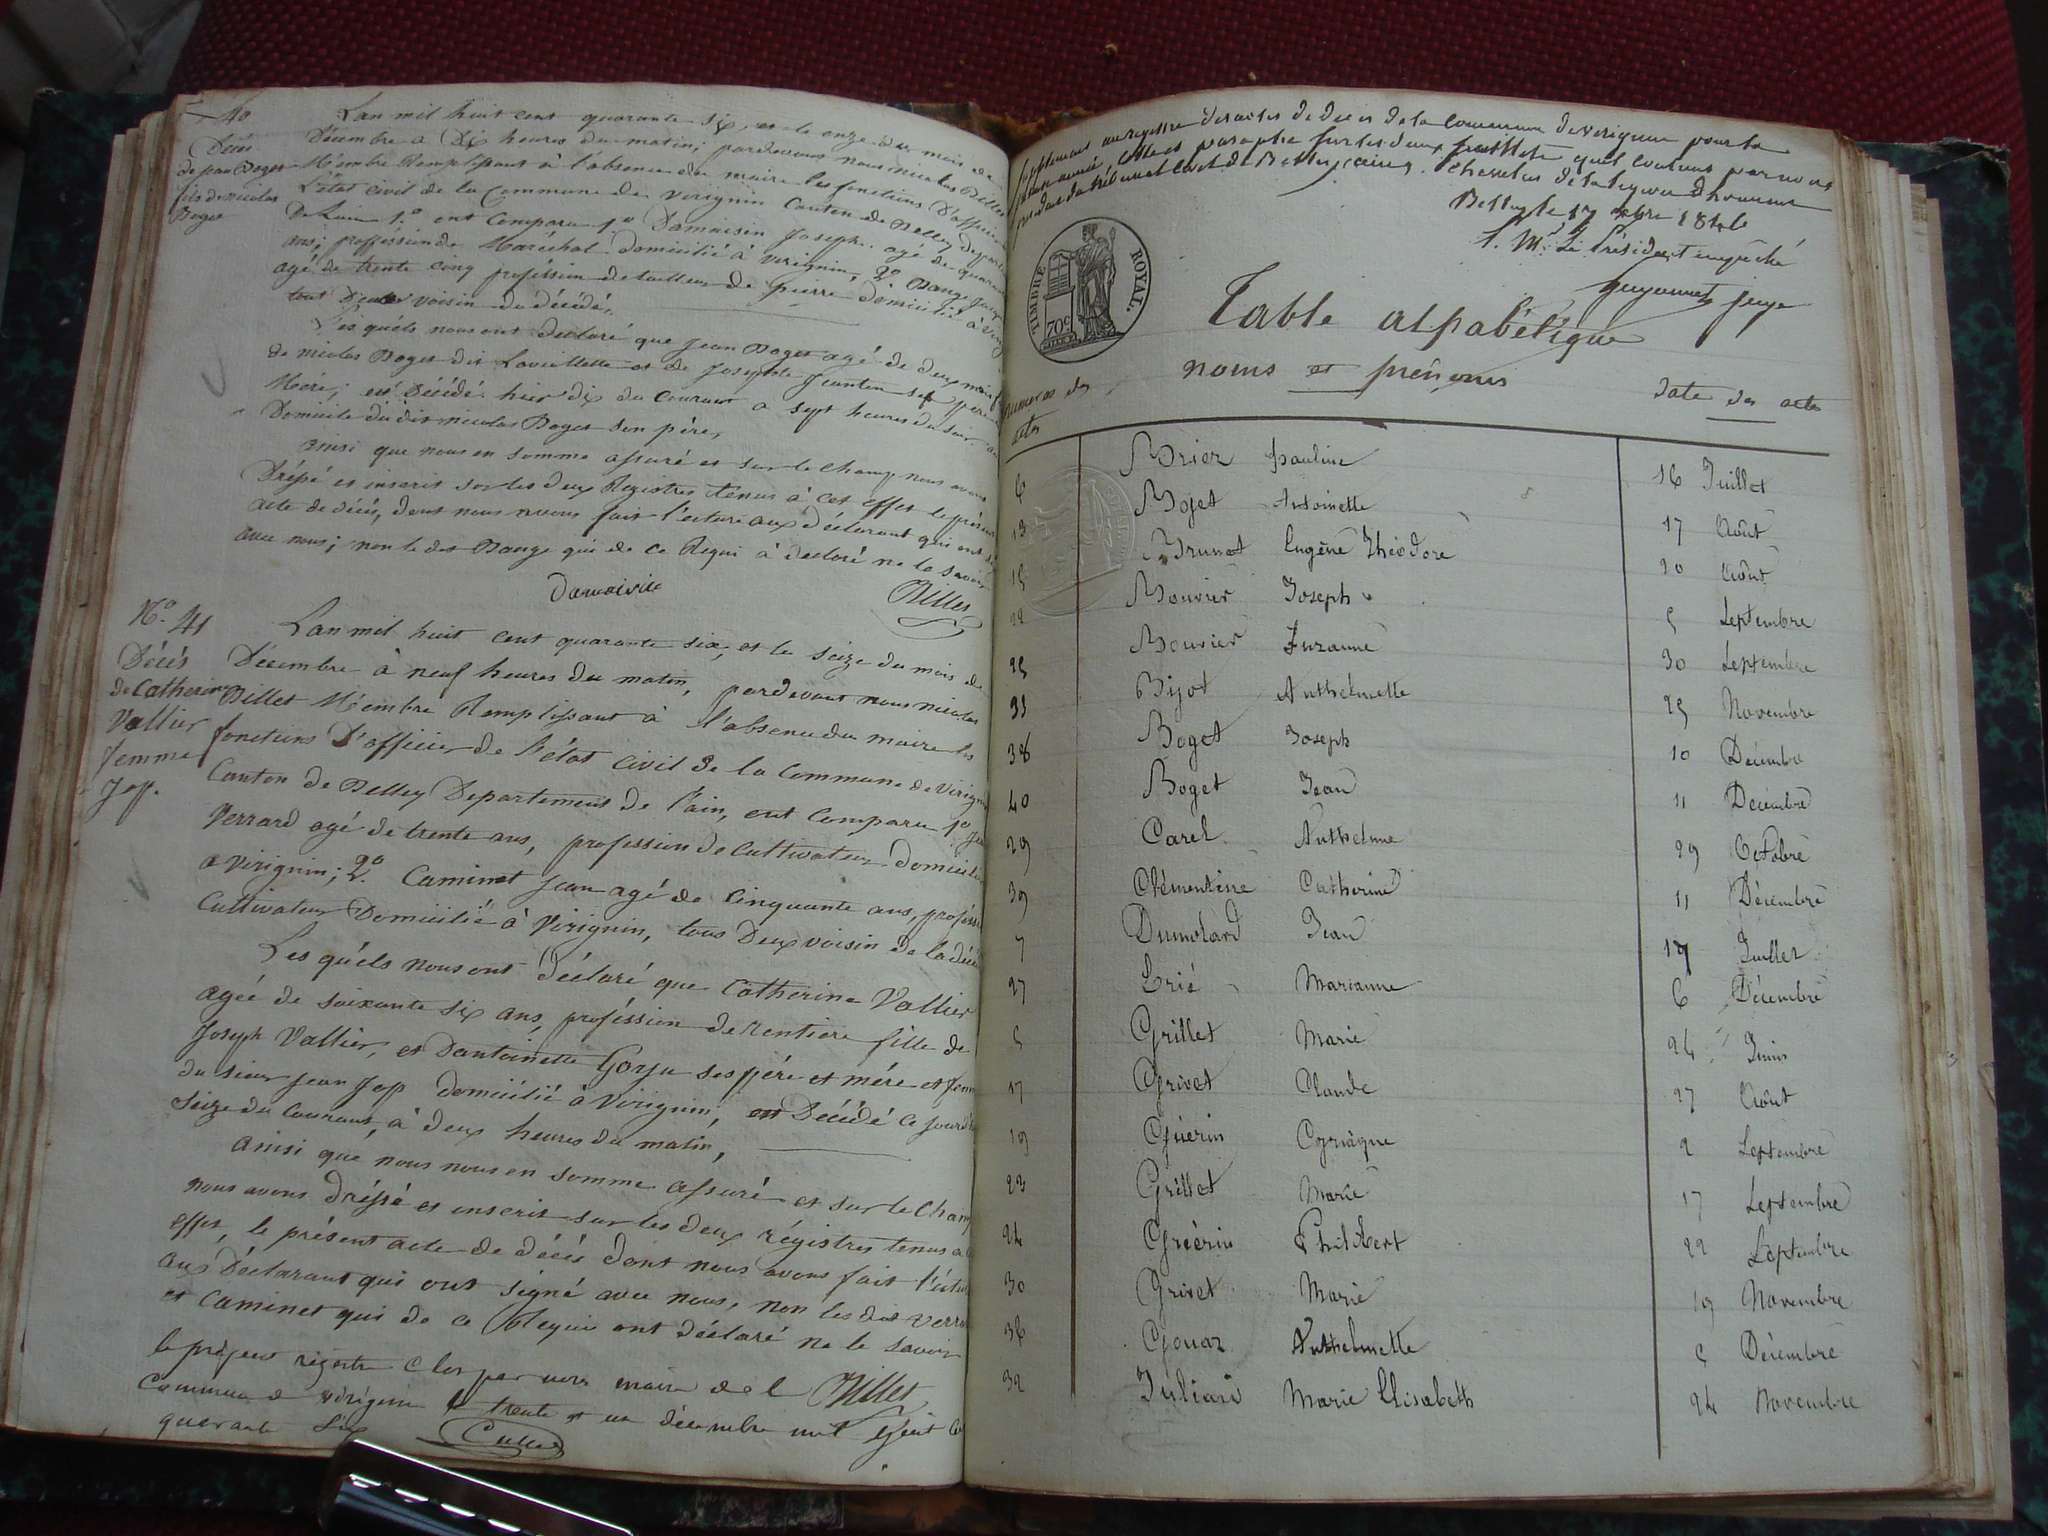 40
Décès
de jean Boget
fils de Nicolas
Boget
Lan mil huit cent quarante six, et le onze du mois de
Décembre à Dix heures du matin; pardevant nous nicolas Billet
Membre Remplissant à l'absence du maire les fonctions D'officier
L'état civil de la Commune de Virignin Canton de Belley depart
De l'ain 1.o ent Comparu 1.o Damaisin Joseph agé de quarante
ans; proféssion de Maréchal domicilié à Virignin; 2.o Bange
agé de trente cinq proféssion de tailleur de pierre domicilié à Virig
tout Deux voisin du décédé,
Les quéls nous ont déclaré que Jean Boget agé de deux mois
de nicolas Boget dit Laviollette et de Josephte Jeanton ses pére
Mére; est Décédé hier dix du Courant a sept heures du soir au
Domicile du dit nicolas Boget son pére,
ainsi que nous en somme assuré et sur le champ nous avons
Dréssé et inscrit sur les deux Registres tenus à cet effet le présent
acte de décès, dont nous avons fait l'écture aux déclarant qui ont
avec nous; non le dit Bange qui de ce Requi à déclaré ne le savoir
Damaisin Billet
N.o 41
Décés
de Catherine
Vallier
femme
Jopp.
Lan mil huit cent quarante six, et le seize du mois de
Décembre à neuf heures du matin, pardevant nous nicolas
Billet Membre Remplissant à l'absence du maire les
fonctions D'officier de l'état civil de la Commune de Virignin
Canton de Belley Departement de l'ain, ent Comparu 1.o
Verrard agé de trente ans, proféssion de cultivateur domicilié
a Virignin; 2.o Caminet Jean agé de Cinquante ans, proféssi
Cultivateur Domicilié à Virignin, tous Deux voisin de la décé
Les quéls nous ont déclaré que Catherine Vallier
agée de soixante six ans, proféssion de rentiere fille de
Joseph Vallier, et Dantoinette Gorju ses pére et mére et femm
du sieur Jean Jopp domicilié à Virignin, est Décédé ce jourd
seize du Courant, à deux heures du matin,
ainsi que nous nous en somme assuré et sur le champ
nous avons dréssé et inscrit sur les deux régistres tenus a
effet, le présent acte de décès dont nous avons fait l'éctu
aux Déclarant qui ont signé avec nous, non les dit Verra
et Caminet qui de ce Requi ont déclaré ne le savoir
le présent régistre clos par nous maire de l Billet
commune de virignin le trente et un décembre mil huit ce
quarante six
Supplément au registre des actes de décès de la Commune de Virignin pour la
Belley le 17 1846
P. Mr. Le Président empêché
juge
TIMBRE ROYAL.
70c
Table alpabétique
numeros des actes
noms et prénoms
date des actes
6 Brier pauline 16 Juillet
13 Boget Antoinette 17 Août
15 Brunet Eugène Théodore 20 Août
22 Bouvier Joseph 5 Septembre
25 Bouvier Suzanne 30 Septembre
33 Bijot Anthelmette 25 Novembre
38 Boget Joseph 10 Décembre
40 Boget Jean 11 Décembre
29 Carel Anthelme 29 Octobre
39 Clémentine Catherine 11 Décembre
7 Dumolard Jean 19 Juillet
37 Erié Marianne 6 Décembre
5 Grillet Marie 24 Juin
17 Grivet Claude 27 Août
19 Guérin Cyriaque 2 Septembre
23 Grillet Marie 17 Septembre
24 Guérin Philibert 22 Septembre
30 Grivet Marie 19 Novembre
36 Gouar Anthelmette 5 Décembre
32 Juliani Marie Elisabeth 24 Novembre